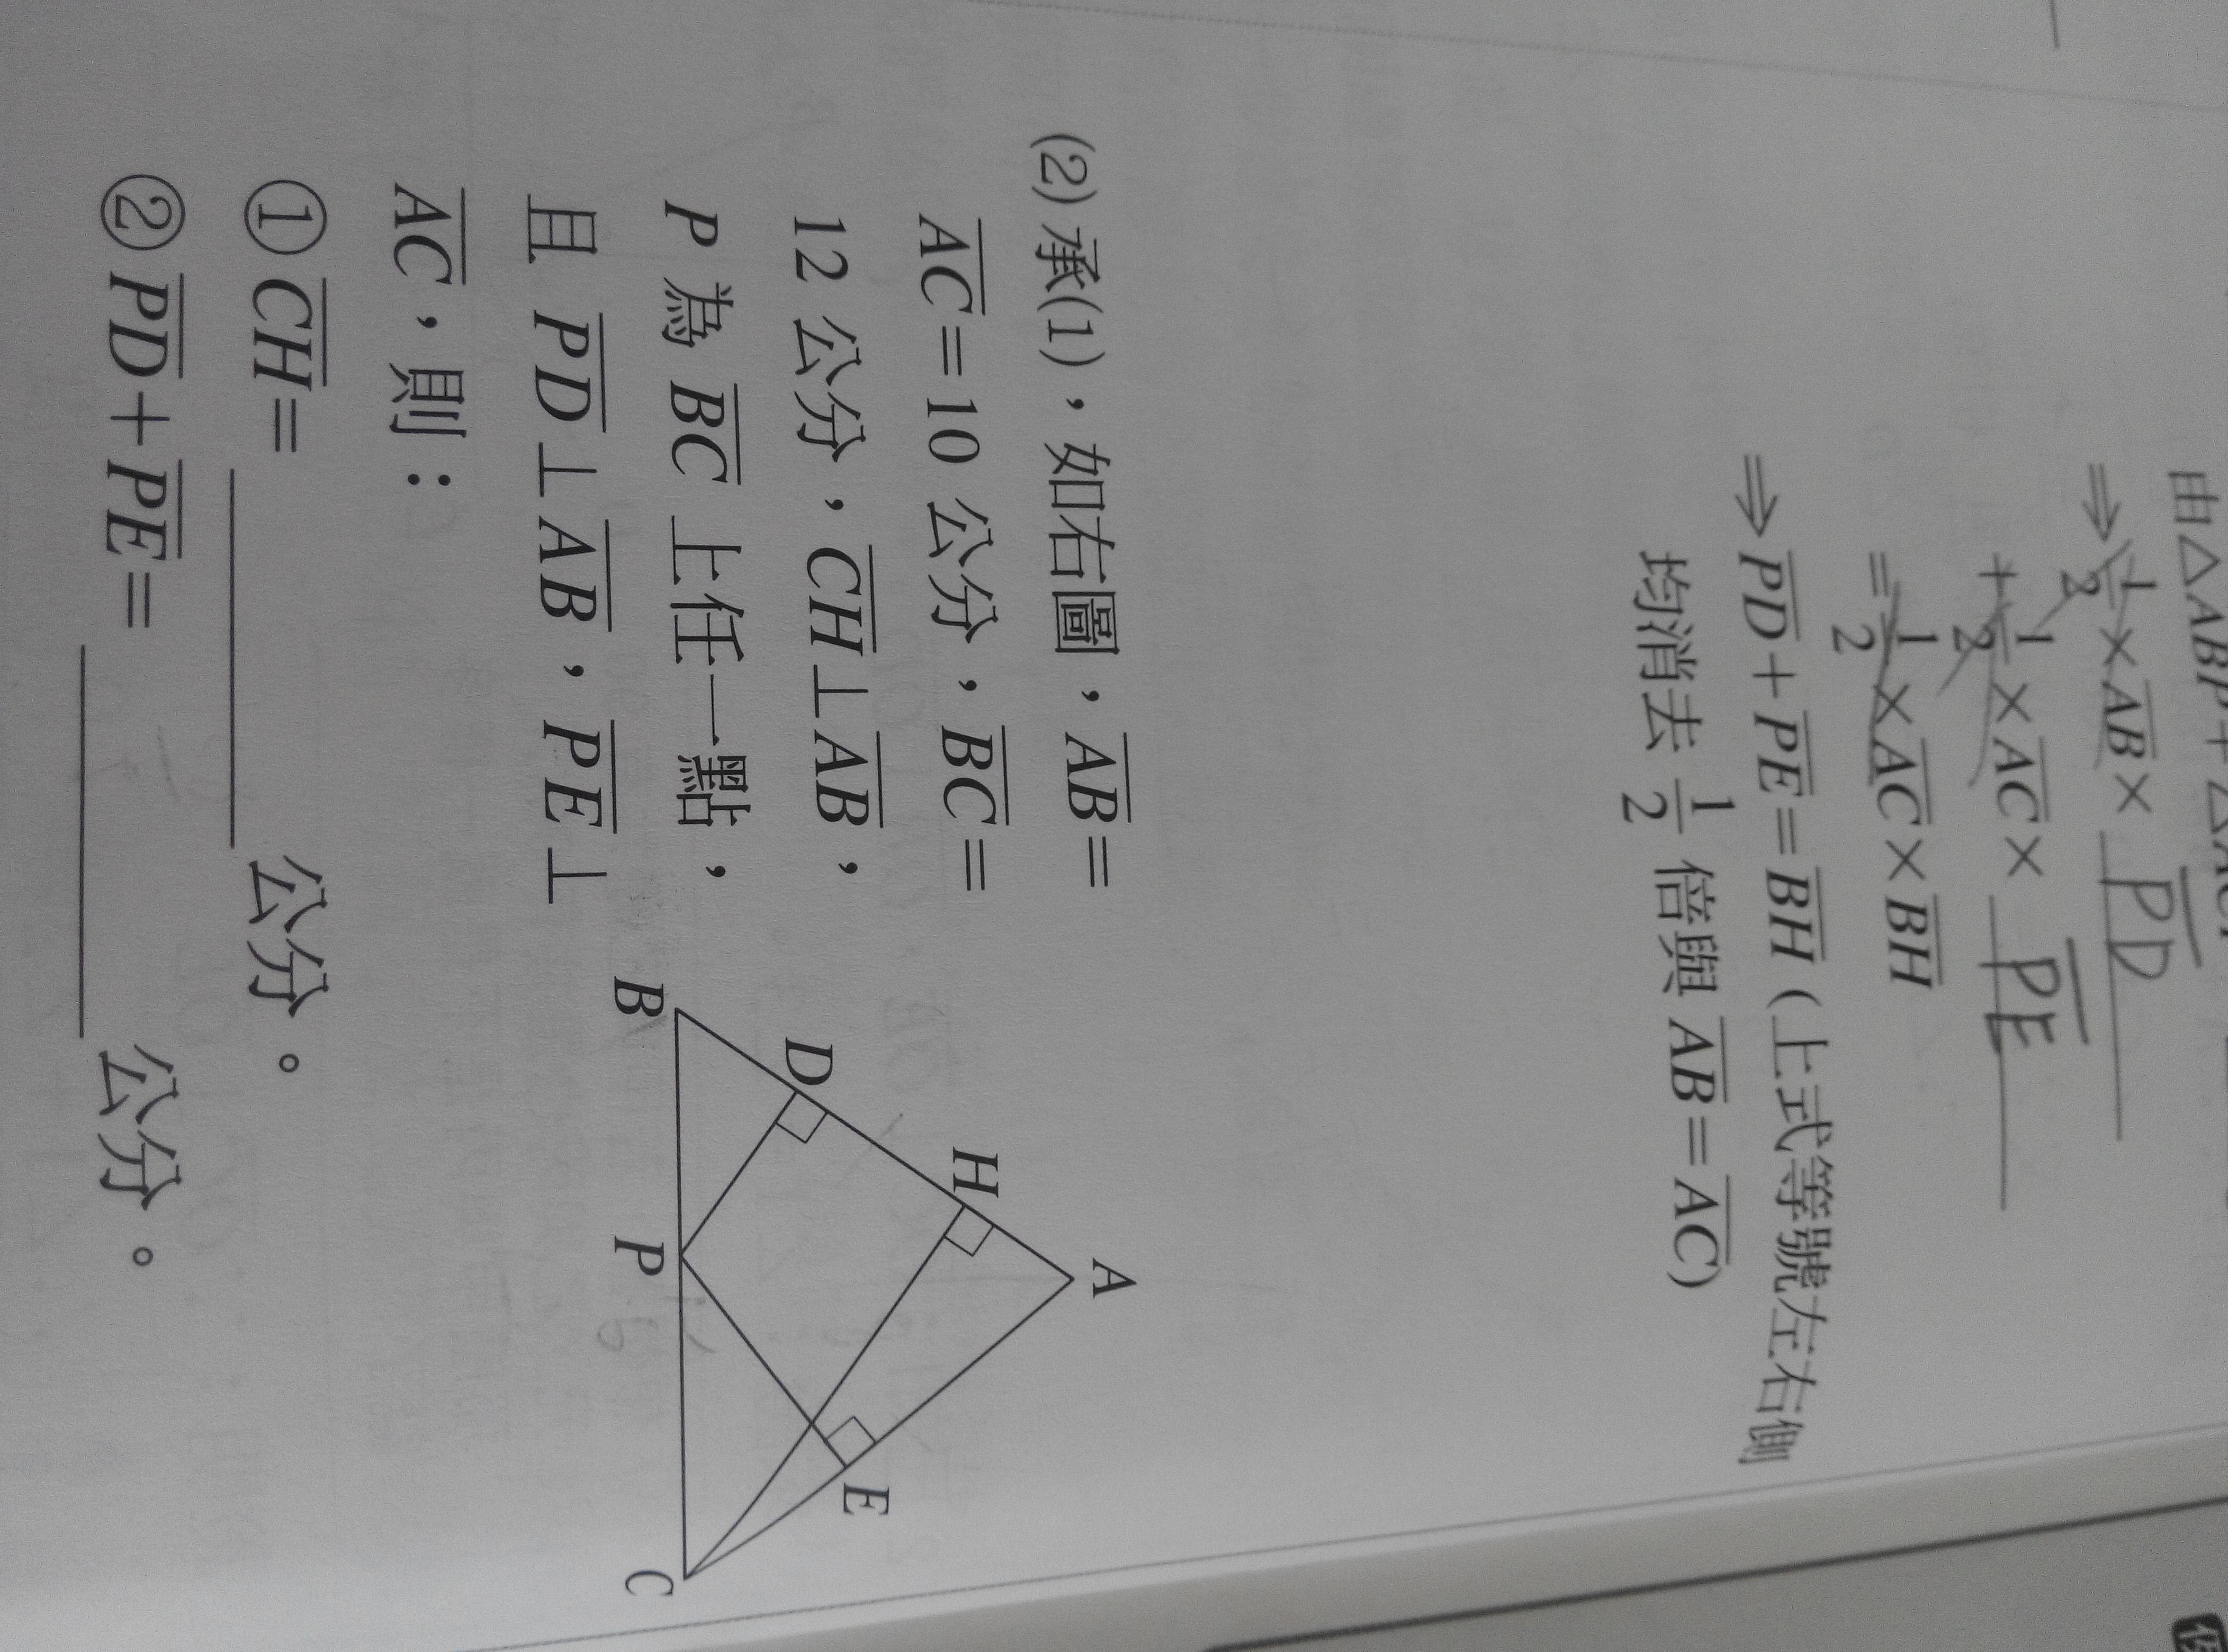 由△ABP+△ACP
⇒1/2×AB×PD
+1/2×AC×PE
=1/2×AC×BH
⇒PD+PE=BH(上式等號左右側
均消去1/2倍與AB=AC)
(2)承(1),如右圖,AB=
AC=10公分,BC=
12公分,CH⊥AB,
P為BC上任一點,
且PD⊥AB,PE⊥
AC,則:
①CH=______公分。
②PD+PE=______公分。
A
H
D
E
B
P
C